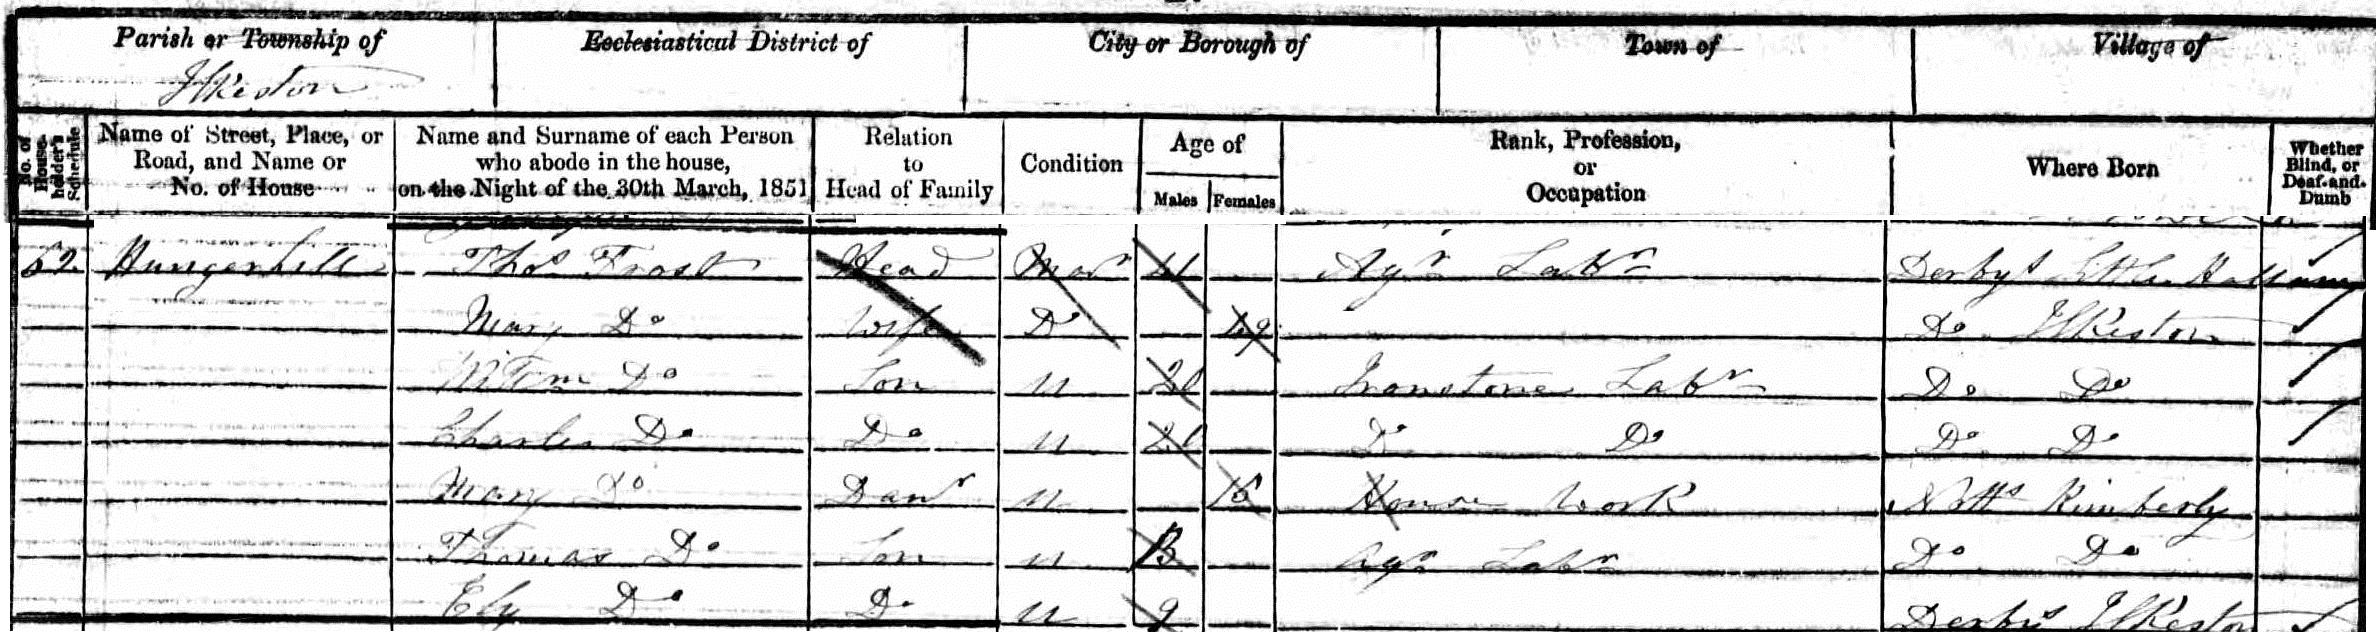 Parish or Township of
Ilkeston
Ecclesiastical District of
City or Borough of
Town of
Village of
No. of House-holder's Schedule
Name of Street, Place, or Road, and Name or No. of House
Name and Surname of each Person who abode in the house, on the Night of the 30th March, 1851
Relation to Head of Family
Condition
Age of
Males
Females
Rank, Profession, or Occupation
Where Born
Whether Blind, or Deaf-and-Dumb
62. Hungerhill Thos Frost Head Mar Agr Labr Derbys Little Hallam
Mary Do Wife Do 49 Do Ilkeston
Do Son U Ironstone Labr Do Do
Charles Do Do U 21 Do Do Do Do
Mary Do Daur U 16 House Work Notts Kimberly
Thomas Do Son U 13 Agr Labr Do Do
Ely Do Do U 9 Derbys Ilkeston